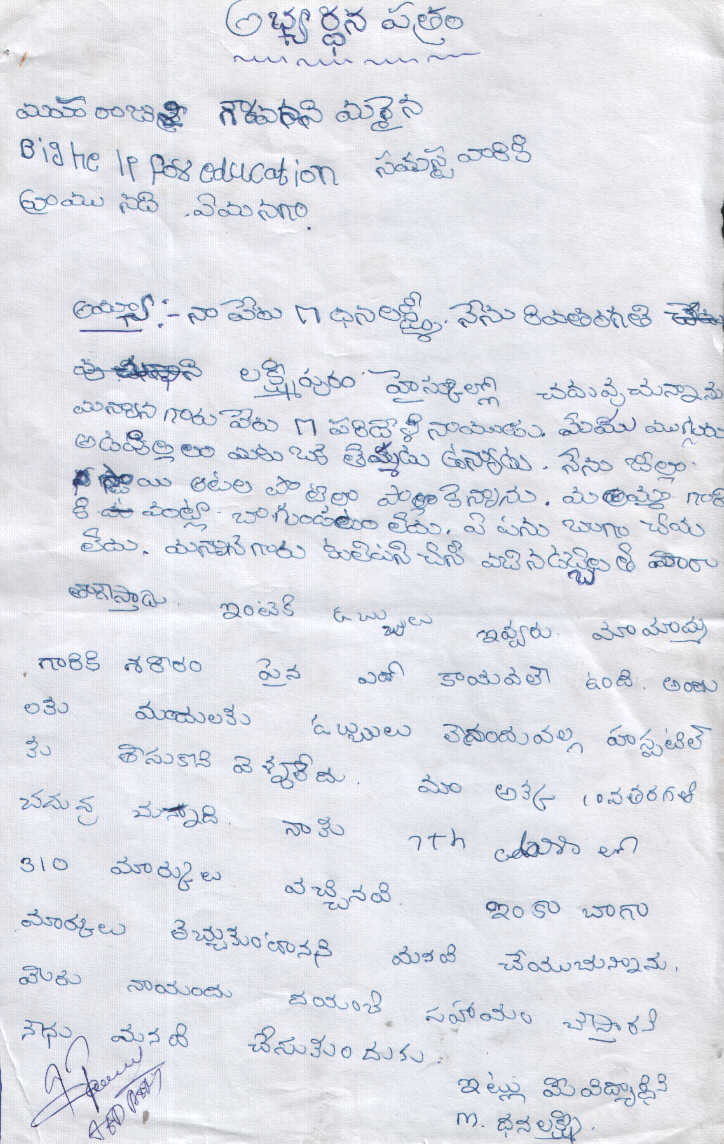 అభ్యర్ధన పత్రం
మహారాజశ్రీ గౌరవనీయులైన
Bighelp for education సమస్ట వారికి
వ్రాయునది ఏమనగా.
అయ్యా :- నా పేరు M ధనలక్ష్మి. నేను 8వతరగతి
లక్ష్మీపురం హైస్కుల్లో చదువుచున్నాను
మనాన్నగారు పేరు M పరదేశినాయుడు. మేము ముగ్గురు
ఆడపిల్లలం మరు ఒక తమ్ముడు ఉన్నాడు. నేను జిల్లా
స్థాయి ఆటల పొటిలో పాల్గొన్నాను. మఅమ్మ గారి
కి వంట్లో బాగుండటం లేదు. ఏ పను బాగా చేయ
లేదు. మనాన్నగారు కులిపని చేసి వచినడబ్బులతో సారా
తాగేస్తాడు. ఇంటికి డబ్బులు ఇవ్వరు. మాయమ్మ
గారికి శరీరం పైన ఎదో కాయవలె ఉంది. అందు
లకు మందులకు డబ్బులు లేనందువల్ల హస్పటల్
కు తీసుకొని వెళ్ళలేదు. మా అక్క 10వతరగతి
చదువు చున్నాది. నాకు 7th class లో
310 మార్కులు వచ్చినవి. ఇంకా బాగా
మార్కులు తెచ్చుకుంటానని మనవి చేయుచున్నాను.
మీరు నాయందు దయంచి సహాయం చేస్తారని
నేను మనవి చేసుకుందుకు.
ఇట్లు మీవిద్యార్దిని
M. ధనలక్ష్మి.